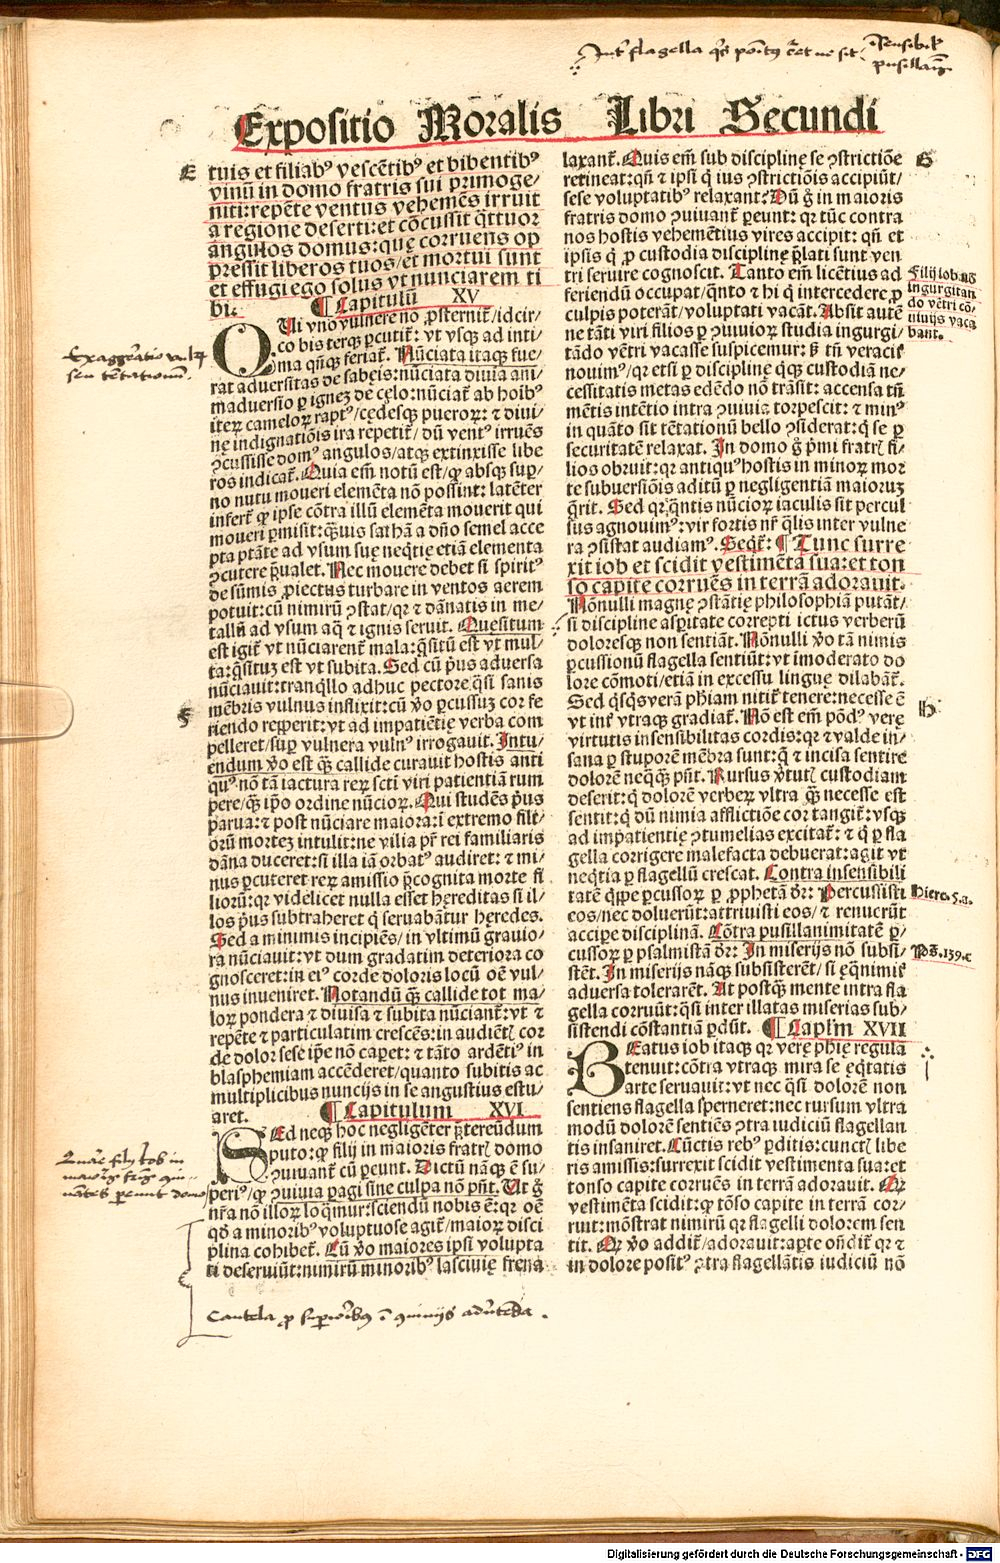 Expositio Moralis Libri Secundi
E
tuis et filiabꝰ vescẽtibꝰ et bibentibꝰ
vinũ in domo fratris sui primoge/
niti: repẽte ventus vehemẽs irruit
a regione deserti: et cõcussit q̃ttuor
angulos domus: quę corruens op
pressit liberos tuos/et mortui sunt
et effugi ego solus vt nunciarem ti
bi. ¶ Capitulũ XV
QUi vno vulnere nõ ꝓsternit᷑/idcir/
co bis terqꝫ ꝑcutit᷑: vt vsqꝫ ad inti/
ma qñqꝫ feriat᷑. Nũciata itaqꝫ fue/
rat aduersitas de sabęis: nũciata diuia ani/
maduersio ꝑ ignez de cęlo: nũciat᷑ ab hoibꝰ
iteꝝ cameloꝝ raptꝰ/cędesqꝫ pueroꝝ: ⁊ diui/
nę indignatiõis ira repetit᷑/dũ ventꝰ irruẽs
ꝯcussisse domꝰ angulos/atqꝫ extinxisse libe
ros indicat᷑. Quia em̃ notũ est/ꝙ absqꝫ sup̱/
no nutu moueri elemẽta nõ possint: latẽter
infert᷑ ꝙ ipse cõtra illũ elemẽta mouerit qui
moueri ꝑmisit: q̃uis sathã a dño semel acce
pta ptãte ad vsum suę neq̃tię etiã elementa
ꝯcutere p̃ualet. Nec mouere debet si spiritꝰ
de sũmis ꝓiectus turbare in ventos aerem
potuit: cũ nimirũ ꝯstat/qꝛ ⁊ dãnatis in me/
tallũ ad vsum aq̃ ⁊ ignis seruit. Quęsitum
est igit᷑ vt nũciarent᷑ mala: q̃sitũ est vt mul/
ta: q̃situz est vt subita. Sed cũ p̃us aduersa
nũciauit: tranq̃llo adhuc pectore q̃si sanis
mẽbris vulnus inflixit: cũ ꝟo ꝑcussuz cor fe
riendo repperit: vt ad impatiẽtię verba com
pelleret/sup̱ vulnera vulnꝰ irrogauit. Intu/
endum ꝟo est q̃ꝫ callide curauit hostis anti
quꝰ nõ tã iactura reꝝ scti viri patientiã rum
pere/q̃ꝫ ip̃o ordine nũcioꝝ. Qui studẽs p̃us
parua: ⁊ post nũciare maiora: ĩ extremo fili/
orũ mortez intulit: ne vilia pr̃ rei familiaris
dãna duceret: si illa iã orbatꝰ audiret: ⁊ mi/
nus ꝑcuteret reꝝ amissio p̃cognita morte fi
lioꝝ: qꝛ videlicet nulla esset hęreditas si il/
los p̃us subtraheret q̃ seruabãtur hęredes.
Sed a minimis incipiẽs/in vltimũ grauio/
ra nũciauit: vt dum gradatim deteriora co
gnosceret: in eiꝰ corde doloris locũ oẽ vul/
nus inueniret. Notandũ q̃ꝫ callide tot ma/
loꝝ pondera ⁊ diuisa ⁊ subita nũciant᷑: vt ⁊
repẽte ⁊ particulatim crescẽs: in audiẽtꝭ cor
de dolor sese ip̃e nõ caperet: ⁊ tãto ardẽtiꝰ in
blasphemiam accẽderet/quanto subitis ac
multiplicibus nuncijs in se angustius estu/
aret. ¶ Capitulum XVI
SEd neqꝫ hoc negligẽter p̃tereũdum
puto: ꝙ filij in maioris fratrꝭ domo
ꝯuiuant᷑ cũ ꝑeunt. Dictũ nãqꝫ ẽ su/
periꝰ/ꝙ ꝯuiuia ꝑagi sine culpa nõ pñt. Ut g̃
nr̃a nõ illoꝝ loq̃mur: sciendũ nobis ẽ: qꝛ oẽ
qd̃ a minoribꝰ voluptuose agit᷑/maioꝝ disci
plina cohibet᷑. Cũ ꝟo maiores ipsi volupta
ti deseruiũt: nimirũ minoribꝰ lasciuię frena
F
G
laxant᷑. Quis em̃ sub disciplinę se ꝯstrictiõe
retineat: qñ ⁊ ipsi q̃ ius ꝯstrictiõis accipiũt/
sese voluptatibꝰ relaxant? Dũ g̃ in maioris
fratris domo ꝯuiuant᷑ ꝑeunt: qꝛ tũc contra
nos hostis vehemẽtius vires accipit: qñ et
ipsis q̃ ꝓ custodia disciplinę p̃lati sunt ven
tri seruire cognoscit. Tanto em̃ licẽtius ad
feriendũ occupat/q̃nto ⁊ hi q̃ intercedere ꝓ
culpis poterãt/voluptati vacãt. Absit autẽ
ne tãti viri filios ꝑ ꝯuiuioꝝ studia ingurgi/
tãdo vẽtri vacasse suspicemur: ß tñ veracit᷑
nouimꝰ/qꝛ etsi ꝑ disciplinę q̃qꝫ custodiã ne/
cessitatis metas edẽdo nõ trãsit: accensa tñ
mẽtis intẽtio intra ꝯuiuia torpescit: ⁊ minꝰ
in quãto sit tẽtationũ bello ꝯsiderat: q̃ se ꝑ
securitatẽ relaxat. In domo g̃ p̃mi fratrꝭ fi/
lios obruit: qꝛ antiquꝰ hostis in minoꝝ mor
te subuersiõis aditũ ꝑ negligentiã maioruꝫ
q̃rit. Sed qꝛ q̃ntis nũcioꝝ iaculis sit percul
sus agnouimꝰ: vir fortis nr̃ q̃lis inter vulne
ra ꝯsistat audiamꝰ. Seqt᷑: ¶ Tunc surre
xit iob et scidit vestimẽta sua: et ton
so capite corruẽs in terrã adorauit.
Nõnulli magnę ꝯstãtię philosophiã putãt/
si disciplinę asp̱itate correpti ictus verberũ
doloresqꝫ non sentiãt. Nõnulli ꝟo tã nimis
ꝑcussionũ flagella sentiũt: vt imoderato do
lore cõmoti/etiã in excessu linguę dilabãt᷑.
Sed q̃sq̃s verã phiam nitit᷑ tenere: necesse ẽ
vt int᷑ vtraqꝫ gradiat᷑. Nõ est em̃ põdꝰ verę
virtutis insensibilitas cordis: qꝛ ⁊ valde in/
sana ꝑ stuporẽ mẽbra sunt: q̃ ⁊ incisa sentire
dolorẽ neq̃qꝫ pñt. Rursus ꝟtutꝭ custodiam
deserit: q̃ dolorẽ verbeꝝ vltra q̃ꝫ necesse est
sentit: q̃ dũ nimia afflictiõe cor tangit᷑: vsqꝫ
ad impatientię ꝯtumelias excitat᷑: ⁊ q̃ ꝑ fla
gella corrigere malefacta debuerat: agit vt
neq̃tia ꝑ flagellũ crescat. Contra insensibili
tatẽ q̃ppe ꝑcussoꝝ ꝑ ꝓphetã dr̃: Percussisti
eos/nec doluerũt: attriuisti eos/⁊ renuerũt
accipe disciplinã. Cõtra pusillanimitatẽ ꝑ/
cussoꝝ ꝑ psalmistã dr̃: In miserijs nõ subsi/
stẽt. In miserijs nãqꝫ subsisterẽt/si ęq̃nimis
aduersa tolerarẽt. At postq̃ꝫ mente intra fla
gella corruũt: q̃si inter illatas miserias sub/
sistendi cõstantiã ꝑdũt. ¶ Capl̃m XVII
BEatus iob itaqꝫ qꝛ verę phię regula
tenuit: cõtra vtraqꝫ mira se ęq̃tatis
arte seruauit: vt nec q̃si dolorẽ non
sentiens flagella sperneret: nec rursum vltra
modũ dolorẽ sentiẽs ꝯtra iudiciũ flagellan
tis insaniret. Cũctis rebꝰ ꝑditis: cunctꝭ libe
ris amissis: surrexit scidit vestimenta sua: et
tonso capite corruẽs in terrã adorauit. Qꝛ
vestimẽta scidit: ꝙ tõso capite in terrã cor/
ruit: mõstrat nimirũ qꝛ flagelli dolorem sen
tit. Qꝛ ꝟo addit᷑/adorauit: aꝑte oñdit᷑ qꝛ ⁊
in dolore positꝰ ꝯtra flagellãtis iudiciũ nõ
Filij iob nõ
ingurgitan
do vẽtri cõ/
uiuijs vaca
bant.
H
Hiere. 5. a.
Ps. 139. c
Cautela ꝓ superioribus ĩ ꝯuiuijs aduertenda.
Digitalisierung gefördert durch die Deutsche Forschungsgemeinschaft - DFG